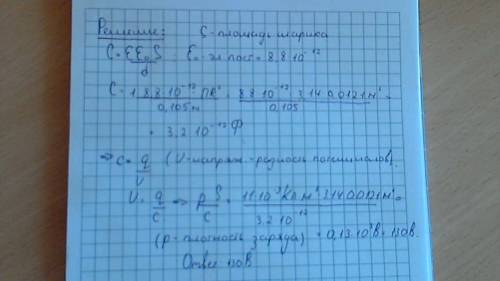 Решение: S-площадь шарика
C = εε₀S / d ε₀-эл. пост = 8,8·10⁻¹²
C = 1·8,8·10⁻¹²·ПR² / 0,105м = 8,8·10⁻¹²·3,14·0,0121м² / 0,105 =
= 3,2·10⁻¹² Ф
⇒ C = q / U (U-напряж-разность потенциалов).
U = q / C ⇒ ρS / C = 11·10⁻⁹Кл м²·3,14·0,0121м² / 3,2·10⁻¹² =
(ρ-плотность заряда) = 0,13·10³В = 130В.
Ответ 130В.